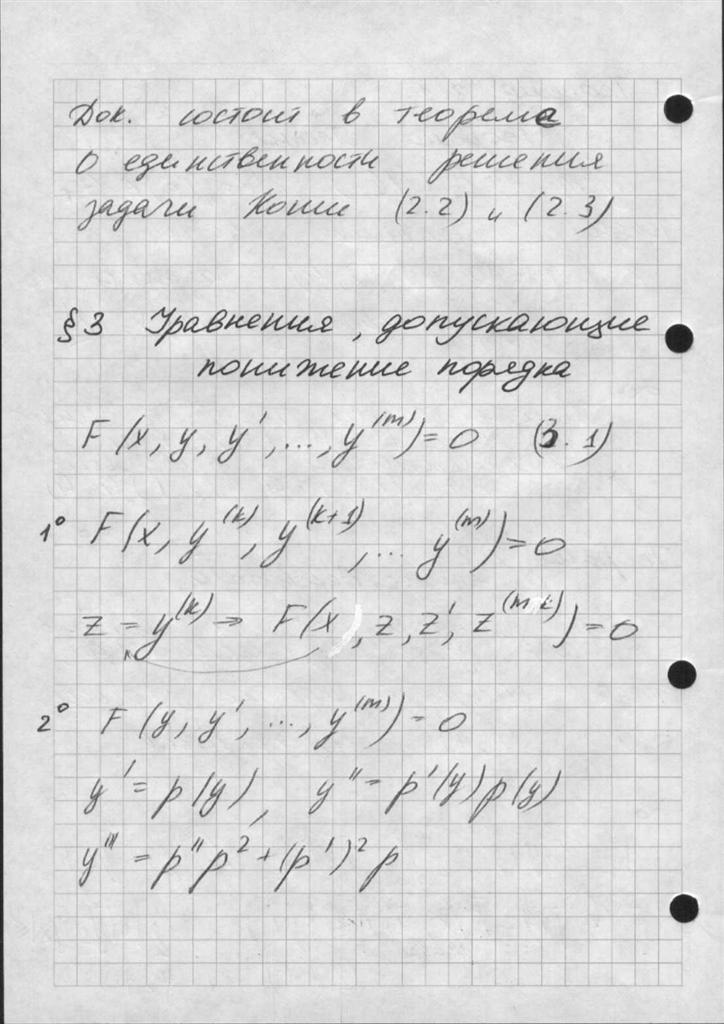 Док. состоит в теореме
о единственности решения
задачи Коши (2.2) и (2.3)
§3 Уравнения, допускающие
понижение порядка
F(x, y, y', ..., y^(m)) = 0 (3.1)
1° F(x, y^(k), y^(k+1), ... y^(m)) = 0
z = y^(k) → F(x, z, z', z^(m-k)) = 0
2° F(y, y', ..., y^(m)) = 0
y' = p(y), y'' = p'(y)p(y)
y''' = p''p² + (p')²p